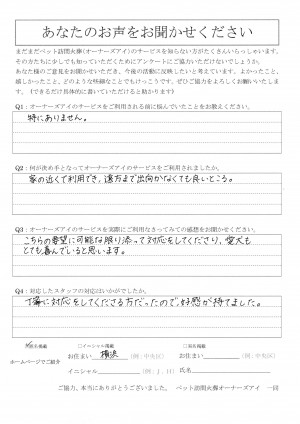 あなたのお声をお聞かせください
まだまだペット訪問火葬(オーナーズアイ)のサービスを知らない方がたくさんいらっしゃいます。
その方たちに少しでも知っていただくためにアンケートにご協力いただけないでしょうか。
あなた様のご意見をお聞かせいただき、今後の活動に反映したいと考えています。よかったこと、
嬉しかったこと、どのような些細なことでもけっこうです。ぜひご協力をよろしくお願いいたしま
す。(できるだけ具体的に書いていただけると助かります)
Q1:オーナーズアイのサービスをご利用される前に悩んでいたことをお教えください。
特にありません。
Q2:何が決め手となってオーナーズアイのサービスをご利用されましたか。
家の近くで利用でき,遠方まで出向かなくても良いところ。
Q3:オーナーズアイのサービスを実際にご利用なさってみての感想をお聞かせください。
こちらの要望に可能な限り添って対応をしてくださり,愛犬も
とても喜んでいると思います。
Q4:対応したスタッフの対応はいかがでしたか。
丁寧に対応をしてくださる方だったので,好感が持てました。
ホームページでご紹介
匿名掲載
□イニシャル掲載
□実名掲載
お住まい 横浜 (例:中央区)
お住まい (例:中央区)
イニシャル (例:J.H)
氏名
ご協力、本当にありがとうございました。 ペット訪問火葬オーナーズアイ 一同